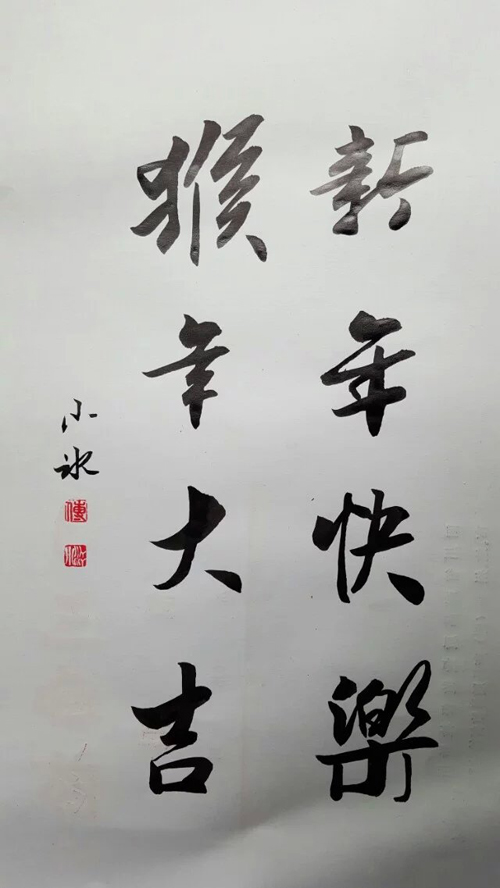 新年快樂
猴年大吉
小冰